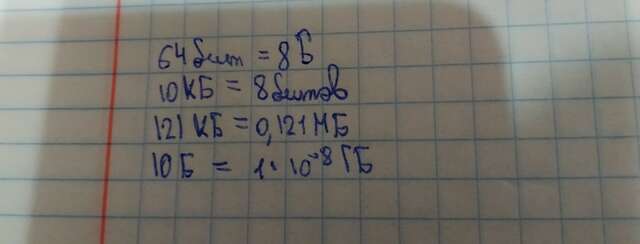 64 бит = 8 Б
10 КБ = 8 битов
121 КБ = 0,121 МБ
10 Б = 1 · 10⁻⁸ ГБ